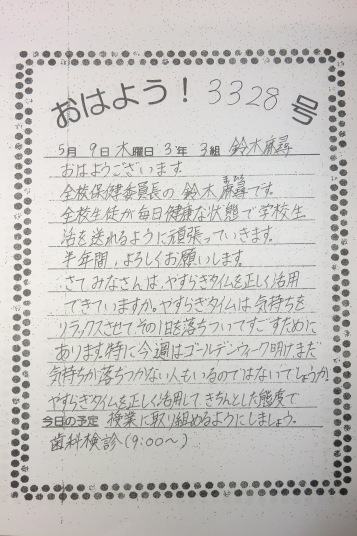 おはよう！ 3328 号
5月 9日 木曜日 3年 3組 鈴木麻尋
おはようございます。
全校保健委員長の 鈴木 麻尋です。
全校生徒が毎日健康な状態で学校生
活を送れるように頑張っていきます。
半年間、よろしくお願いします。
さて、みなさんは、やすらぎタイムを正しく活用
できていますか。やすらぎタイムは、気持ちを
リラックスさせて、その1日を落ちついてすごすために
あります。特に今週はゴールデンウィーク明け、まだ
気持ちが落ちつかない人もいるのではないでしょうか?
やすらぎタイムを正しく活用して、きちんとした態度で
今日の予定 授業に取り組めるようにしましょう。
歯科検診(9:00〜)